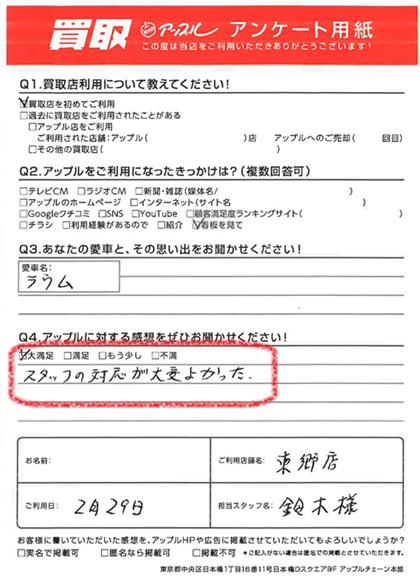 買取 アップル アンケート用紙
この度は当店をご利用いただきありがとうございます!
Q1.買取店利用について教えてください!
☑買取店を初めてご利用
□過去に買取店をご利用されたことがある
□アップル店をご利用
ご利用された店舗:アップル( )店 アップルへのご売却( 回目)
□その他の買取店( )
Q2.アップルをご利用になったきっかけは?(複数回答可)
□テレビCM □ラジオCM □新聞・雑誌(媒体名/ )
□アップルのホームページ □インターネット(サイト名 )
□Googleクチコミ □SNS □YouTube □顧客満足度ランキングサイト( )
□チラシ □利用経験があるので □紹介 ☑看板を見て
Q3.あなたの愛車と、その思い出をお聞かせください!
愛車名:
ラウム
Q4.アップルに対する感想をぜひお聞かせください!
☑大満足 □満足 □もう少し □不満
スタッフの対応が大変よかった.
お名前: ご利用店舗名: 東郷店
ご利用日: 2月29日 担当スタッフ名: 鈴木様
お客様に書いていただいた感想を、アップルHPや広告に掲載させていただいてもよろしいでしょうか?
□実名で掲載可 □匿名なら掲載可 □掲載不可 *ご記入がない場合は匿名での掲載とさせていただきます。
東京都中央区日本橋1丁目16番11号日本橋Dスクエア9F アップルチェーン本部